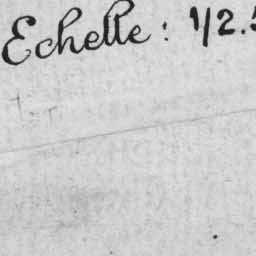 Echelle : 1/2.5